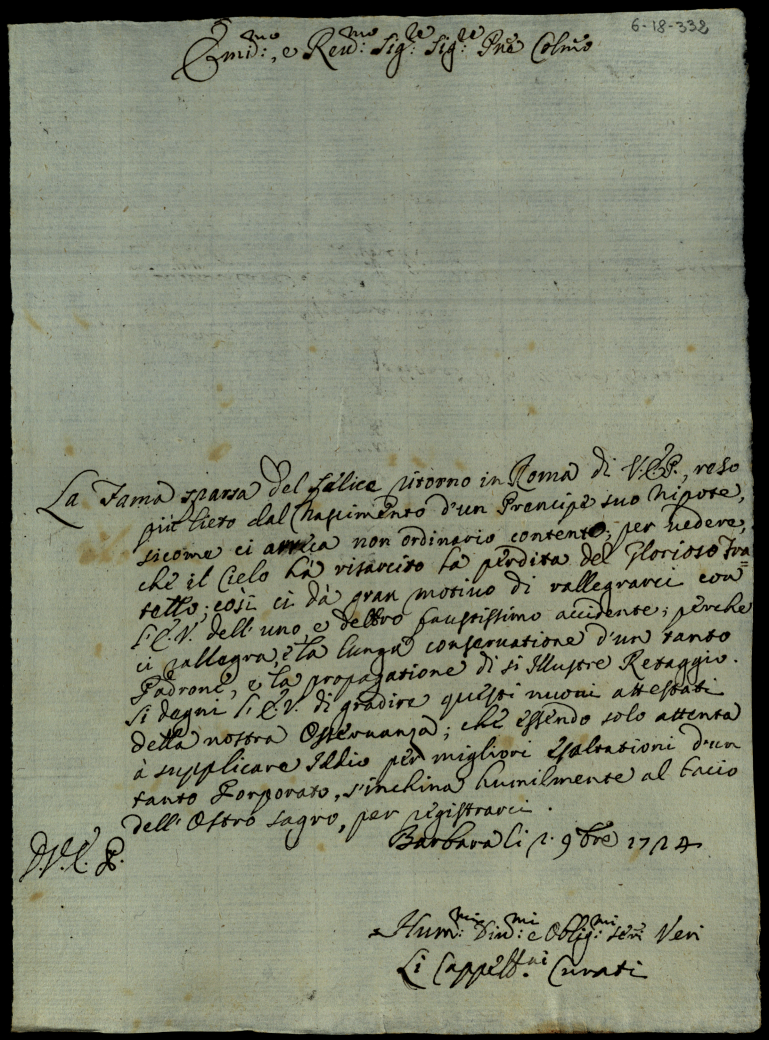 6-18-332
Emi.mo, e Reu.mo Sig.re Sig.re Pne Colmo
La Fama sparsa del felice ritorno in Roma di V.E.P., reso
più lieto dal Nascimento d'un Prencipe suo Nipote,
sicome ci arreca non ordinario contento, per uedere,
che il Cielo hà risarcito la perdita del Glorioso Fra=
tello; così ci dà gran motiuo di rallegrarci con
l'E.V. dell'uno, e dell'tro faustissimo accidente; perche
ci rallegra, e la lunga conseruatione d'un tanto
Padrone, e la propagatione di sì Illustre Retaggio.
Si degni l'E.V. di gradire questi nuoui attestati
della nostra Osseruanza; che essendo solo attenta
à supplicare Iddio per migliori esaltationi d'un
tanto Porporato, s'inchina humilmente al bacio
dell'Ostro sagro, per registrarci.
D.V.E. P.
Barbara li 2. 9bre 1724
Hum.mi Diu.mi e Oblig.mi Seri Veri
Li Cappell.ni Curati